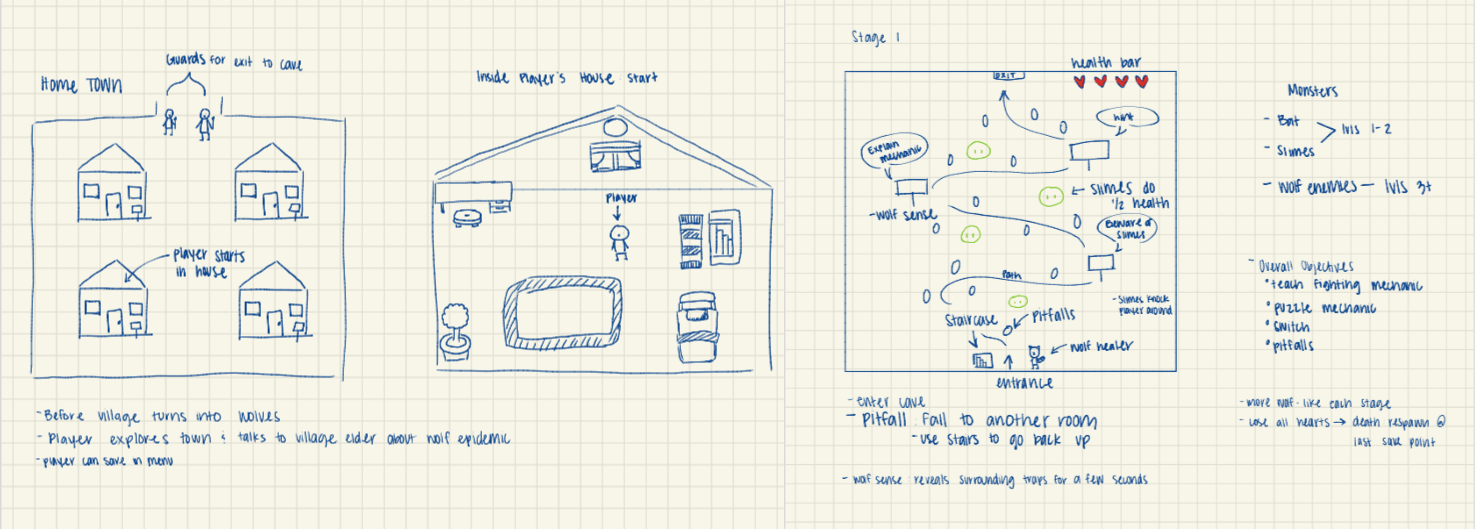 Guards for exit to cave
Home TOWN
Player starts
in house
-Before village turns into wolves
-Player explores town & talks to village elder about wolf epidemic
-player can save in menu
Inside Player's House: start
Player
Stage 1
health bar
EXIT
hint
Explain
mechanic
-wolf sense
slimes do
1/2 health
Beware of
slimes
Path
-Slimes knock
player around
Staircase
Pitfalls
wolf healer
entrance
-enter cave
-Pitfall: Fall to another room
-use stairs to go back up
-wolf sense: reveals surrounding traps for a few seconds
Monsters
-Bat
-Slimes
lvls 1-2
-wolf enemies — lvls 3+
-Overall Objectives
•teach fighting mechanic
•puzzle mechanic
•switch
•pitfalls
-more wolf-like each stage
-Lose all hearts → death respawn @
last save point